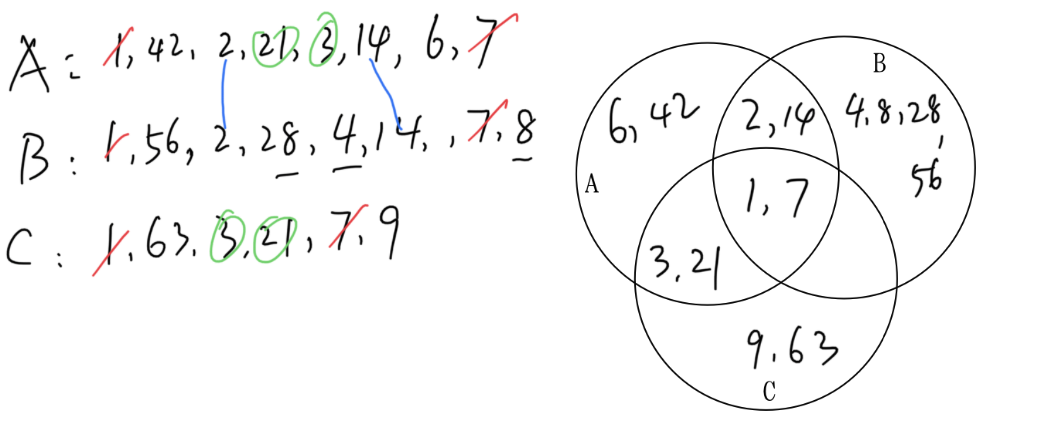 A: 1, 42, 2, 21, 3, 14, 6, 7
B: 1, 56, 2, 28, 4, 14, , 7, 8
C: 1, 63, 3, 21, 7, 9
B
6, 42
2, 14
4, 8, 28,
56
A
1, 7
3, 21
9, 63
C